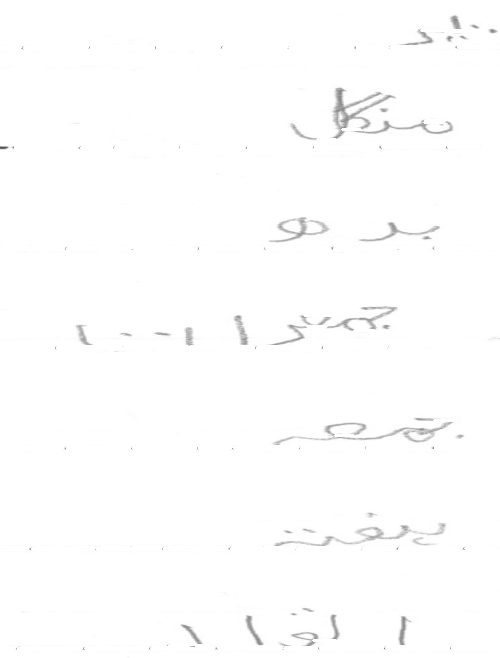 پیر
منگل
بدھ
جمعرات
جمعہ
ہفتہ
اتوار